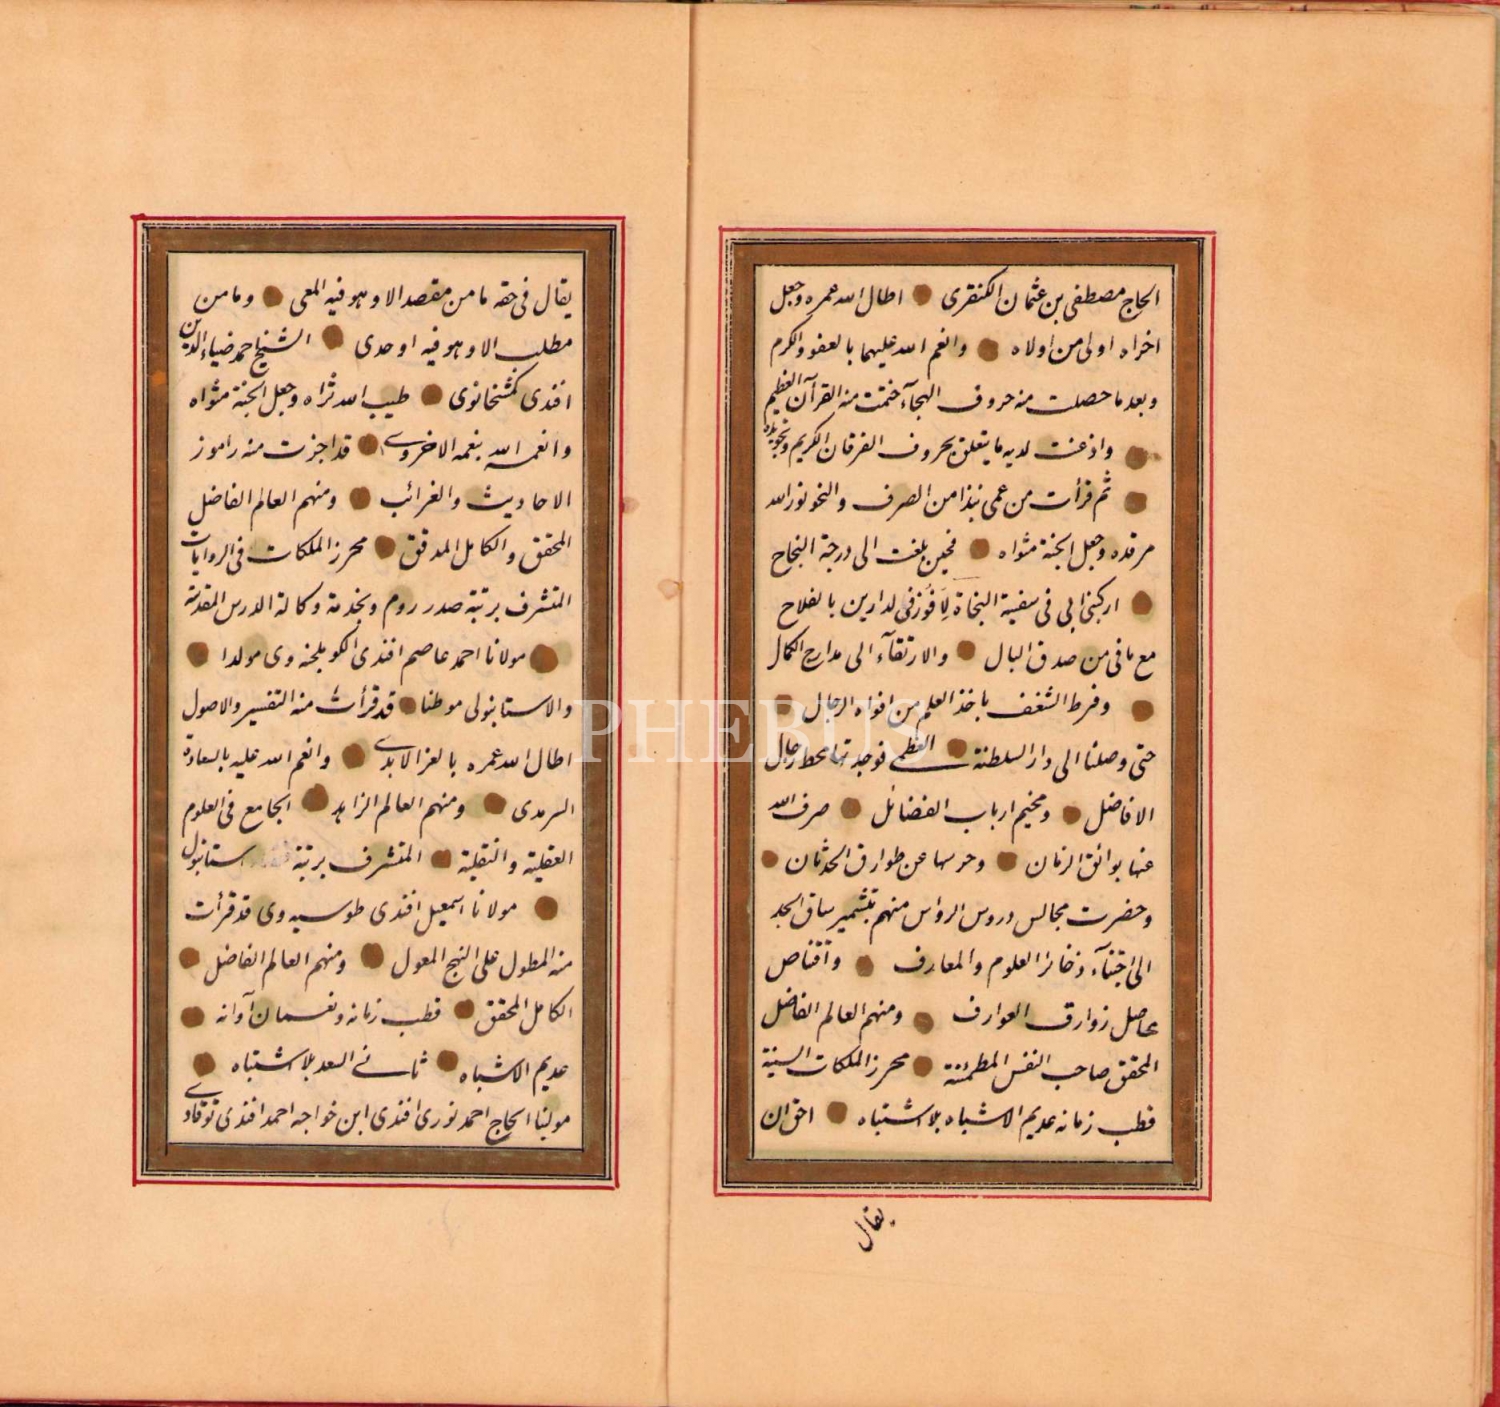 الحاج مصطفى بن عثمان الكنقرى اطال الله عمره وجعل
اخراه اولى من اولاه وانعم الله عليهما بالعفو والكرم
وبعد ما حصلت منه حروف الهجآء ختمت منه القرآن العظيم
واذعنت لديه ما يتعلق بحروف الفرقان الكريم وتجويده
ثم قرأت من عمى نبذا من الصرف والنحو نور الله
مرقده وجعل الجنة مثواه فحين بلغت الى درجة النجاح
اركبنى ابى فى سفينة النجاة لافوز فى الدارين بالفلاح
مع مافى من صدق البال والارتقآء الى مدارج الكمال
وفرط الشغف باخذ العلم من افواه الرجال
حتى وصلنا الى دار السلطنة العظمى فوجدتها محط رجال
الافاضل ومخيم ارباب الفضائل صرف الله
عنها بوائق الزمان وحرسها عن طوارق الحدثان
وحضرت مجالس دروس الرؤاس منهم بتشمير ساق الجد
الى اجتنآء ذخائر العلوم والمعارف واقتناص
زوارق العوارف ومنهم العالم الفاضل
المحقق صاحب النفس المطمئنة محرز الملكات السنية
قطب زمانه عديم الاشباه بلا اشتباه احق ان
يقال
يقال فى حقه ما من مقصد الا وهو فيه المعى وما من
مطلب الا وهو فيه اوحدى الشيخ احمد ضياء الدين
افندى كمشخانوى طيب الله ثراه وجعل الجنة مثواه
وانعمه الله بنعمه الاخروى قد اجزت منه راموز
الاحاديث والغرائب ومنهم العالم الفاضل
المحقق والكامل المدقق محرز الملكات فى الروايات
المتشرف برتبة صدر روم وبخدمة وكالة الدرس المقدسة
مولانا احمد عاصم افندى الكوملجنه وى مولدا
والاستانبولى موطنا قد قرأت منه التفسير والاصول
اطال الله عمره بالعز الابدى وانعم الله عليه بالسعادة
السرمدى ومنهم العالم الزاهد الجامع فى العلوم
العقلية والنقلية المتشرف برتبة استانبول
مولانا اسمعيل افندى طوسيه وى قد قرأت
منه المطول على النهج المعول ومنهم العالم الفاضل
الكامل المحقق قطب زمانه ونعمان آوانه
عديم الاشباه ثانى السعد بلا اشتباه
مولينا الحاج احمد نورى افندى ابن خواجه احمد افندى توقادى
PHEBUS